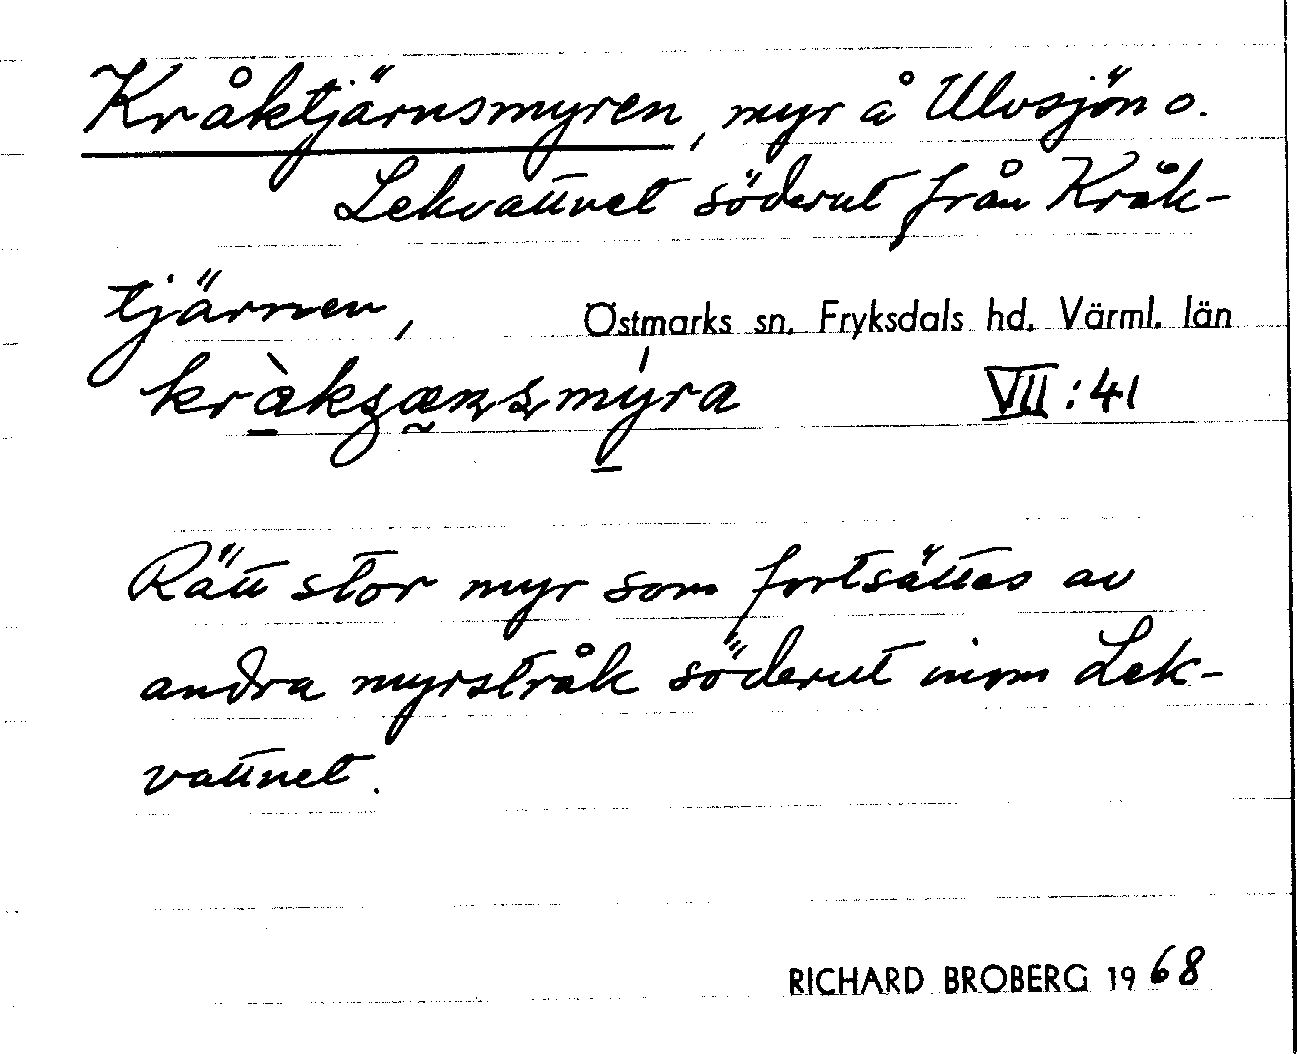 Kråktjärnsmyren, myr å Ulvsjön o.
Lekvattnet söderut från Kråk-
tjärnen,
Östmarks sn. Fryksdals hd. Värml. län
VII:41
Rätt stor myr som fortsättes av
andra myrstråk söderut inom Lek-
vattnet.
RICHARD BROBERG 1968